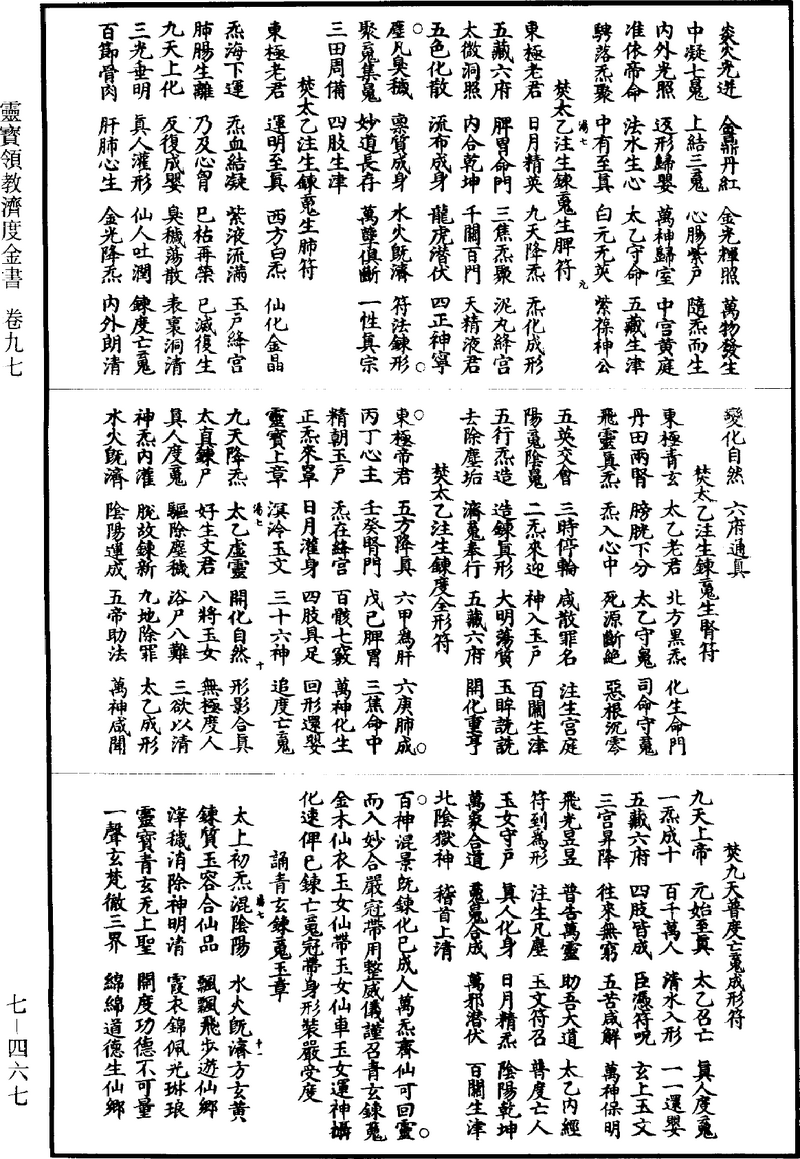 靈寶領教濟度金書 卷九七
七－四六七
炎火光迸 金鼎丹紅 金光輝照 萬物發生
中凝七䰟 上結三䰟 心腸紫戶 隨炁而生
內外光照 返形歸嬰 萬神歸室 中宮黃庭
准依帝命 法水生心 太乙守命 五藏生津
騁落炁聚 中有至真 白元无英 紫葆神公
焚太乙注生鍊䰟生脾符
東極老君 日月精英 九天降炁 炁化成形
五藏六府 脾胃命門 三焦炁聚 泥丸絳宮
太微洞照 內合乾坤 千關百門 天精液君
五色化散 流布成身 龍虎潛伏 四正神寧
塵凡臭穢 稟質成身 水火既濟 符法鍊形
聚䰟集䰟 妙道長存 萬孽俱斷 一性真宗
三田周備 四肢生津
焚太乙注生鍊䰟生肺符
東極老君 運明至真 西方白炁 仙化金晶
炁海下運 炁血結凝 紫液流滿 玉戶絳宮
肺腸生離 乃及心胷 巳枯再榮 巳滅復生
九天上化 反復成嬰 臭穢蕩散 表裏洞清
三光垂明 真人灌形 仙人吐潤 鍊度亡䰟
百節骨肉 肝肺心生 金光降炁 內外朗清
變化自然 六府通真
焚太乙注生鍊䰟生腎符
東極青玄 太乙老君 北方黑炁 化生命門
丹田兩腎 膀胱下分 太乙守䰟 司命守䰟
飛靈真炁 炁入心中 死源斷絕 惡根沉零
五英交會 三時停輪 咸散罪名 注生宮庭
陽䰟陰䰟 二炁來迎 神入玉戶 百關生津
五行炁造 造鍊真形 大明蕩質 玉眸詵詵
去除塵垢 濟䰟奉行 五藏六府 開化重亨
焚太乙注生鍊度全形符
東極帝君 五方降真 六甲為肝 六庚肺成
丙丁心主 壬癸腎門 戊己脾胃 三焦命中
精朝玉戶 炁在絳宮 百骸七竅 萬神化生
正炁來罩 日月灌身 四肢具足 回形還嬰
靈寶上章 溟泠玉文 三十六神 追度亡䰟
九天降炁 太乙虛靈 開化自然 形影合真
太真鍊戶 好生文君 八將玉女 無極度人
真人度䰟 驅除塵穢 浴戶八難 三欲以清
神炁內灌 脫故鍊新 九地除罪 太乙成形
水火既濟 陰陽運成 五帝助法 萬神咸聞
焚九天普度亡䰟成形符
九天上帝 元始至真 太乙召亡 真人度䰟
一炁成十 百千萬人 清水入形 一一還嬰
五藏六府 四肢皆成 臣憑符呪 玄上玉文
三宮昇降 往來無窮 五苦咸解 萬神保明
飛光昱昱 普告萬靈 助吾大道 太乙內經
符到為形 注生凡塵 玉文符召 普度亡人
玉女守戶 真人化身 日月精炁 陰陽乾坤
萬彙合道 䰟䰟合成 萬邪潛伏 百關生津
北陰獄神 稽首上清
百神混景既鍊化已成人萬炁齊仙可回靈
而入妙合嚴冠帶用整威儀謹召青玄鍊䰟
金木仙衣玉女仙帶玉女仙車玉女運神攝
化速俾已鍊亡䰟冠帶身形裝嚴受度
誦青玄鍊䰟玉章
太上初炁混陰陽 水火既濟方玄黃
鍊質玉容合仙品 飄飄飛步遊仙鄉
滓穢消除神明清 霞衣錦佩光琳琅
靈寶青玄无上聖 開度功德不可量
一聲玄梵徹三界 綿綿道德生仙鄉